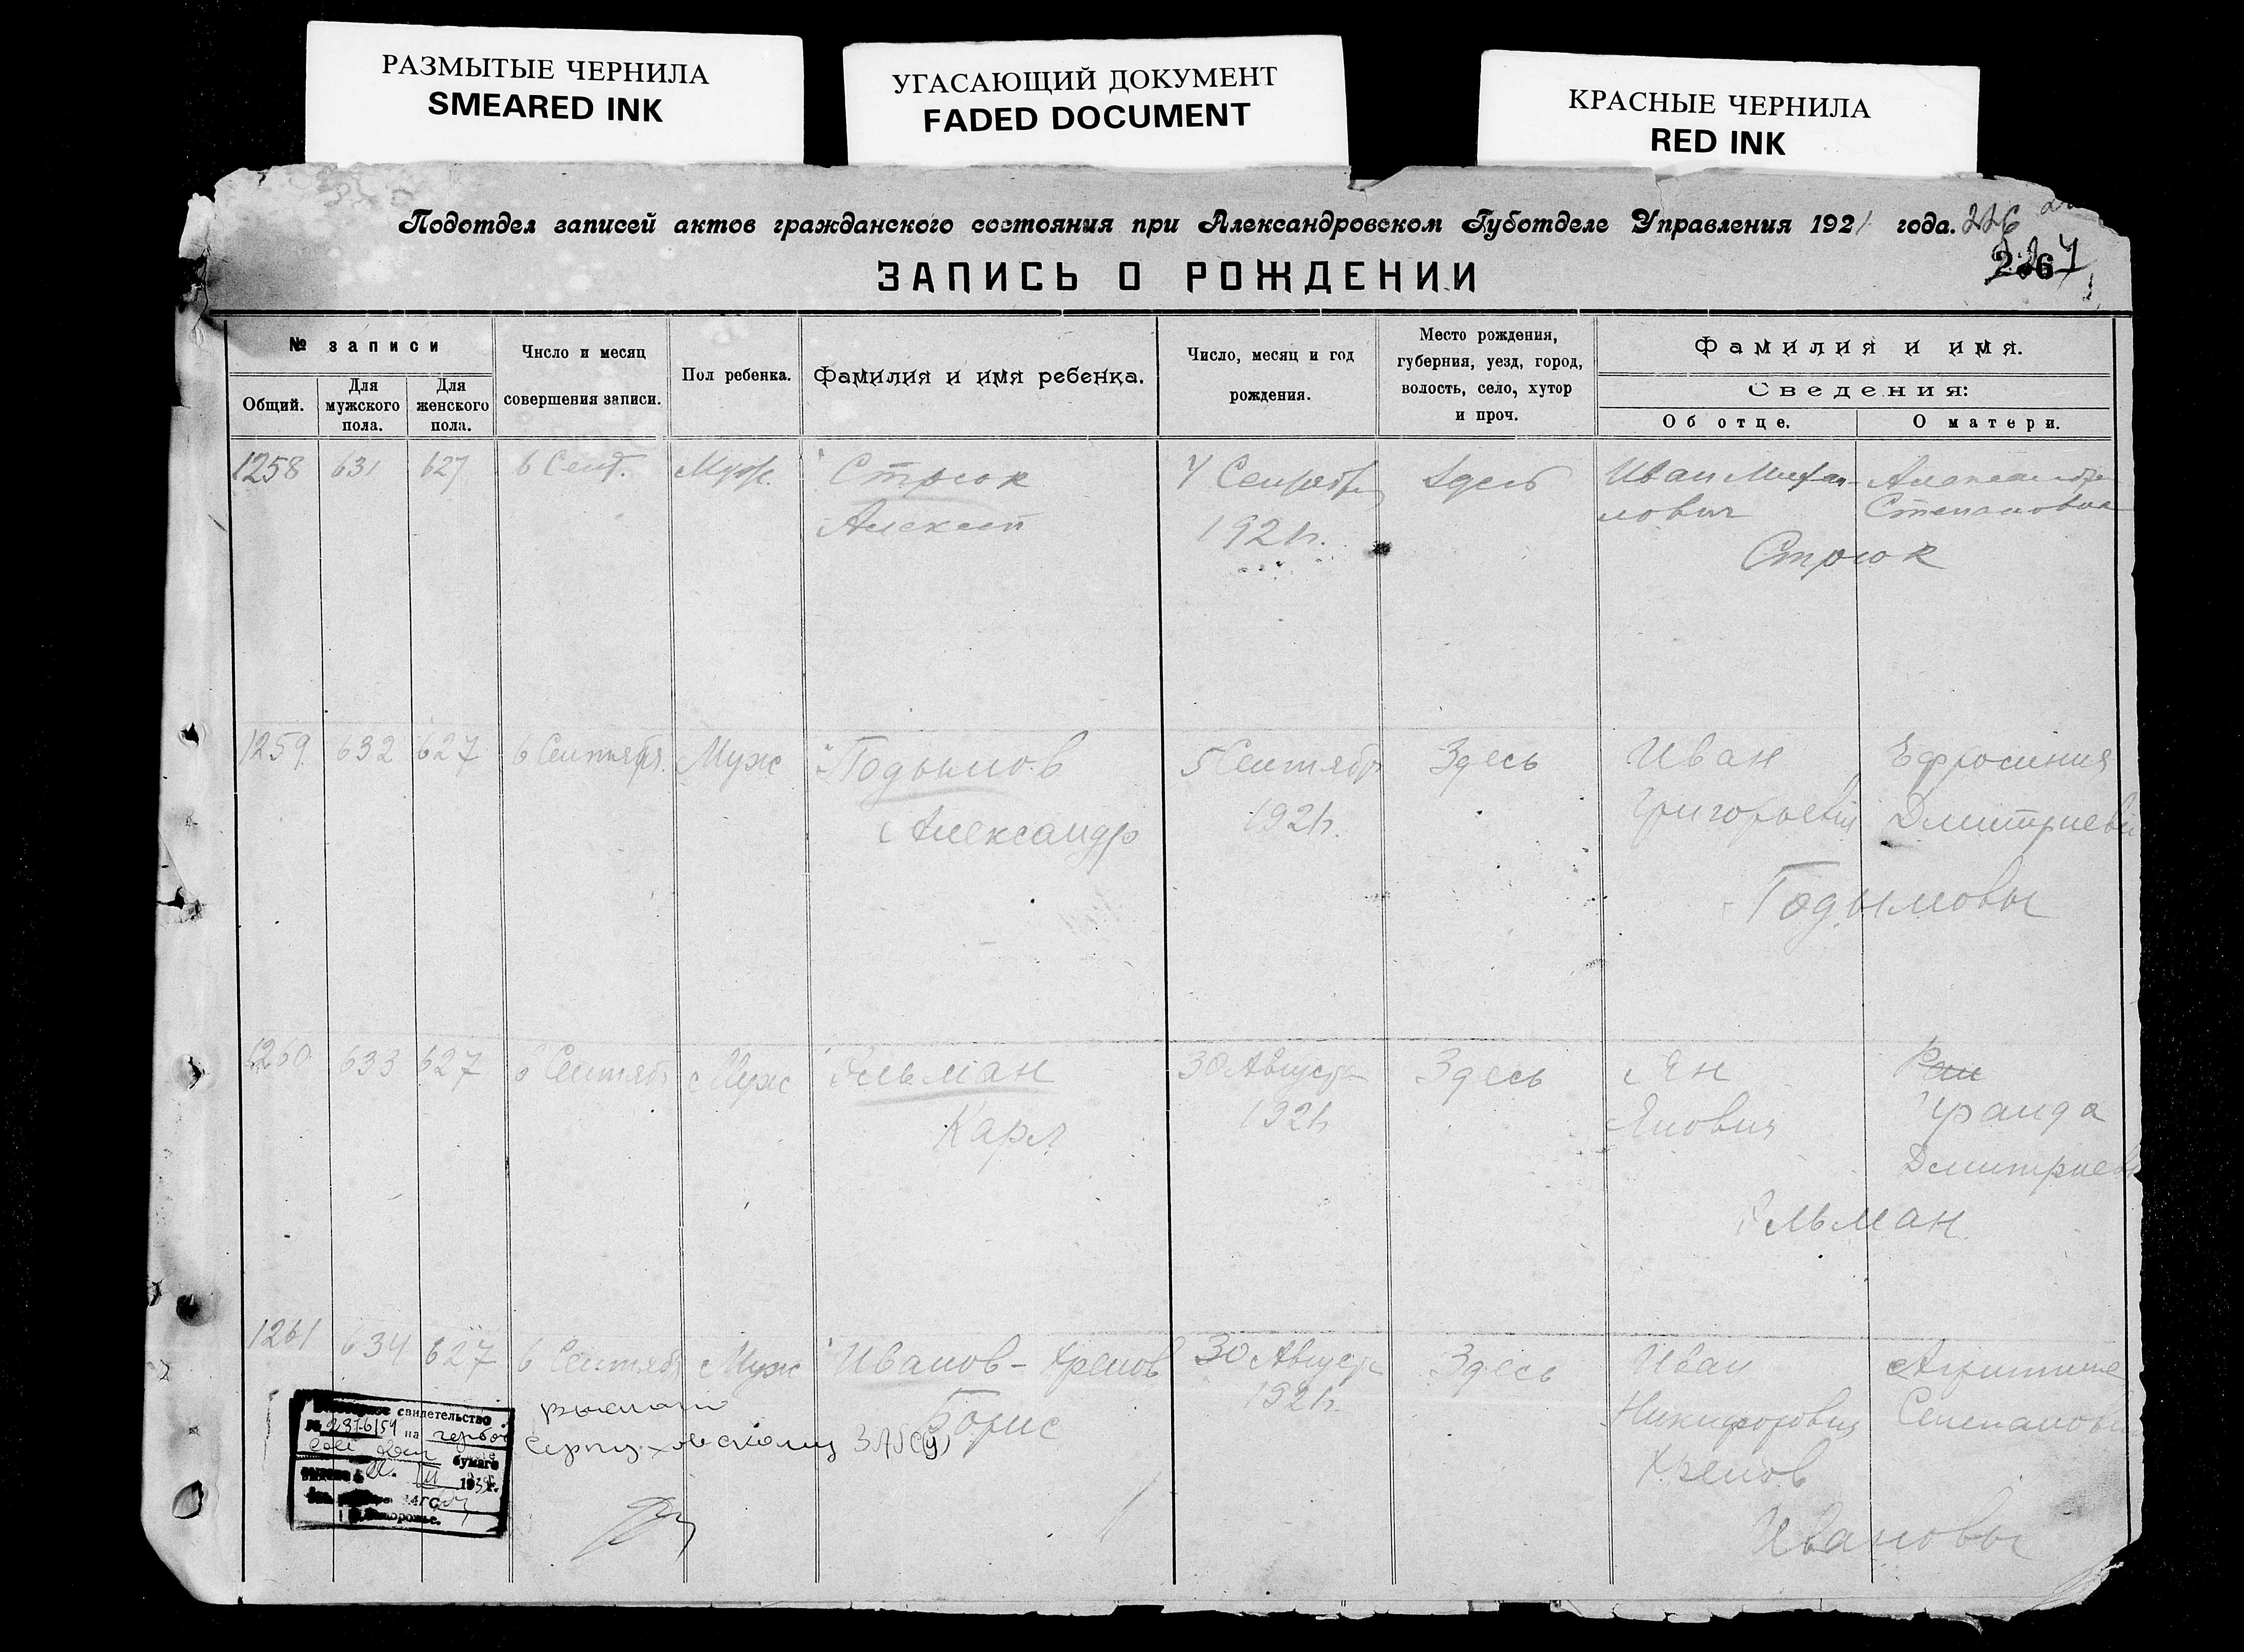 РАЗМЫТЫЕ ЧЕРНИЛА
SMEARED INK
УГАСАЮЩИЙ ДОКУМЕНТ
FADED DOCUMENT
КРАСНЫЕ ЧЕРНИЛА
RED INK
Подотдел записей актов гражданского состояния при Александровском Губотделе Управления 1921 года. 226
ЗАПИСЬ О РОЖДЕНИИ
№ записи
Общий.
Для мужского пола.
Для женского пола.
Число и месяц
совершения записи.
Пол ребенка.
Фамилия и имя ребенка.
Число, месяц и год
рождения.
Место рождения,
губерния, уезд, город,
волость, село, хутор
и проч.
Фамилия и имя.
Сведения:
Об отце.
О матери.
1258 631 627 6 Сент. Муж. Стрюк
Алексей
4 Сентября
1921г.
Здесь
Иван Михай-
лович
Александра
Степановна
Стрюк
1259 632 627 6 Сентября. Муж Годымов
Александр
5 Сентября
1921г.
Здесь
Иван
Григорьевич
Ефросиния
Дмитриевн
Годымовы
1260 633 627 6 Сентяб Муж Ельман
Карл
30 Августа
1921г
Здесь
Ян
Янович
Дмитриев
Ельман
1261 634 627 6 Сентяб Муж Иванов-Хренов
Борис
30 Августа
1921г.
Здесь
Иван
Никифорович
Хренов
Ивановы
свидетельство
на
бумаге
ЗАГС
выслано
Серпуховскому ЗАГСу